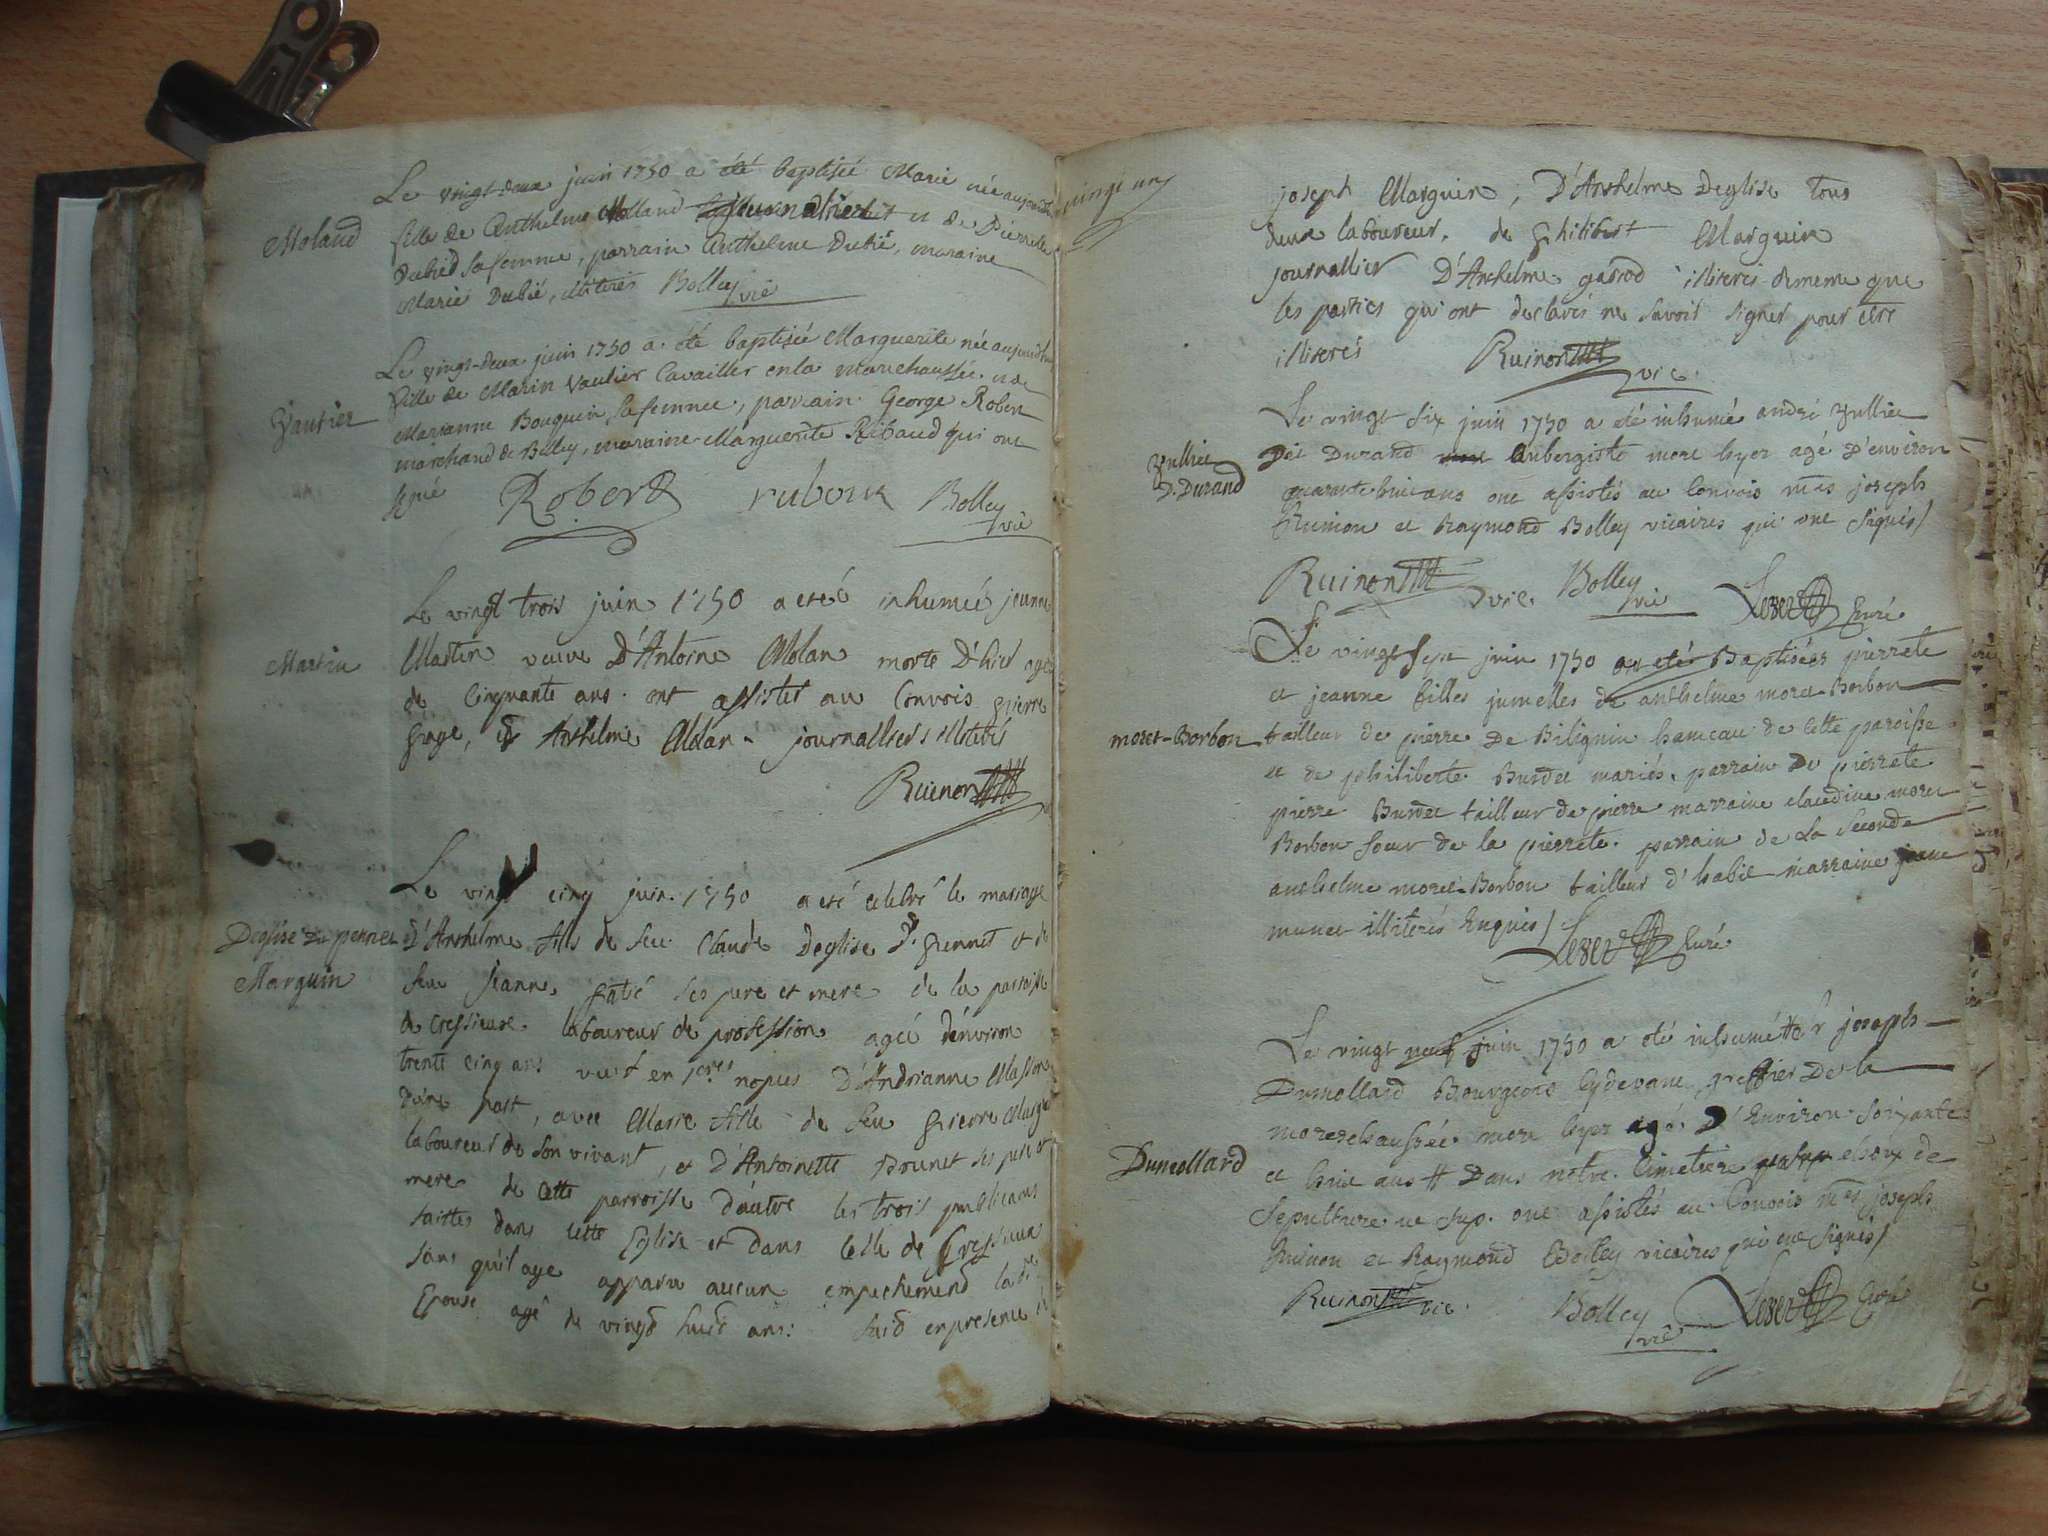 Le vingt-deux juin 1750 a été baptisée Marie née aujourd'hui
Moland
fille de Anthelme Molland journalier et de Pierrette
Dubied sa femme, parrain Anthelme Dubié, maraine
Marie Dubié, illiterés Bolley vic
Le vingt-deux juin 1750 a été baptisée Marguerite née aujourd'hui
Vautier
fille de Marin Vautier Cavailler en la marechaussée et de
Marianne Bouquin, sa femme, parrain George Robert
marchand de Belley, maraine Marguerite Ribaud qui ont
signé Robert rubout Bolley vic
Le vingt trois juin 1750 a eté inhumée jeanne
Martin
Martin veuve D'Antoine Molan morte D'hier agée
de Cinquante ans. ont assister au Convois pierre
page, et Anthelme Molan journalliers illiterés
Ruinon vic
Le vingt cinq juin 1750 a eté celebré le mariage
Deglise du pennet
D'Anthelme fils de feu Claude Deglise D. pennet et de
Marguin
feue Jeanne ses pere et mere de la parroisse
de Cressieux laboureur de profession agée d'environ
trente cinq ans veuf en 1eres nopces D'Andrianne Masson
D'une part, avec Marie fille de feu pierre Marguin
laboureur de son vivant, et D'Antoinette Bounet ses pere et
mere de cette parroisse d'autre les trois publications
faittes dans cette Eglise et dans Celle de Cressieux
sans qu'il aye apparu aucun empechement la de
Epouse agé de vingt huit ans: fait en presence de
vingt un
joseph Marguin, D'Anthelme Deglise tous
deux laboureur, de philibert Marguin
journallier D'Anthelme gabrod illiterés de meme que
les parties qui ont declarés ne savoir signer pour être
illiterés Ruinon vic.
Le vingt six juin 1750 a été inhumé andré Vullier
Vullier
D. Durand
dit Durand aubergiste mort hyer agé d'environ
quarante huit ans ont assistés au Convois mes joseph
Ruinon et Raymond Bolley vicaires qui ont signés/
Ruinon vic. Bolley vic Curé
Le vingt sept juin 1750 ont eté Baptisées pierrete
et jeanne filles jumelles de anthelme moret-Borbon
moret-Borbon
tailleur de pierre De Bilignin hameau de cette paroisse
et de philiberte Burdet mariés. parrain De pierrete
pierre Burdet tailleur de pierre marraine claudine moret
Borbon soeur de la pierrete. parrain de La Seconde
anthelme moret-Borbon tailleur d'habit marraine jeanne
munet illiterés Enquis/ Curé
Le vingt neuf juin 1750 a été inhumé Sr joseph
Dumollard Bourgeois Cydevant greffier De la
marechaussée mort hyer agé D'Environ soixante
Dumollard
et huit ans Dans notre Cimetiere
Sepulture ut sup. ont assistés au Convois mes joseph
Ruinon et Raymond Bolley vicaires qui ont signés/
Ruinon vic. Bolley vic Curé